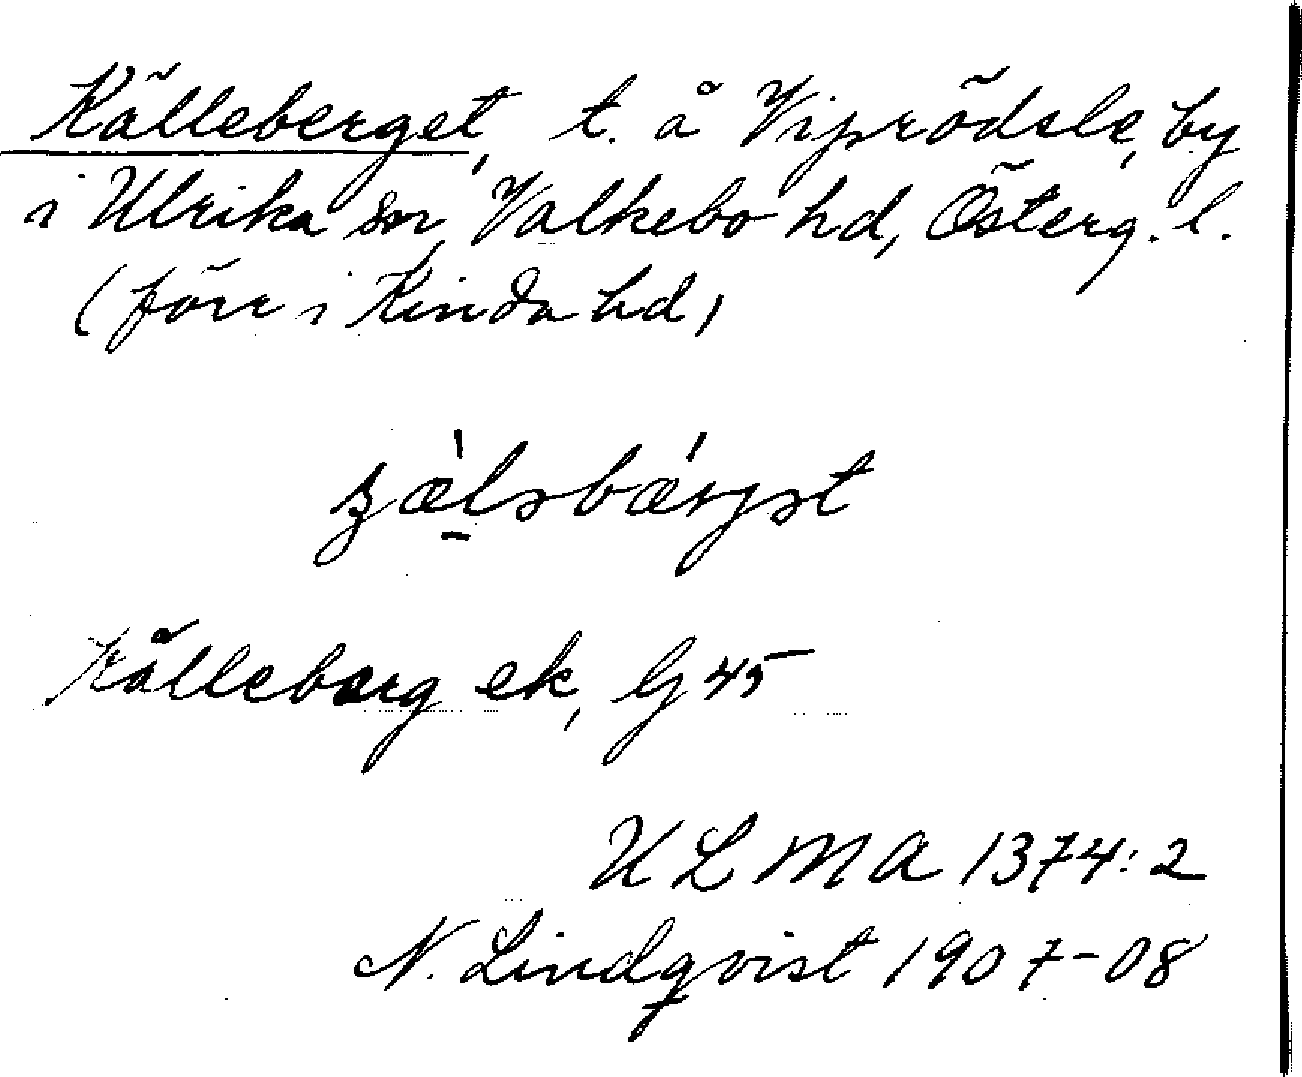 Källeberget, t. å Viprödsle, by
i Ulrika sn, Valkebo hd, Österg. l.
(förr i Kinda hd)
Källeberg ek, G 45
ULMA 1374:2
N. Lindqvist 1907-08